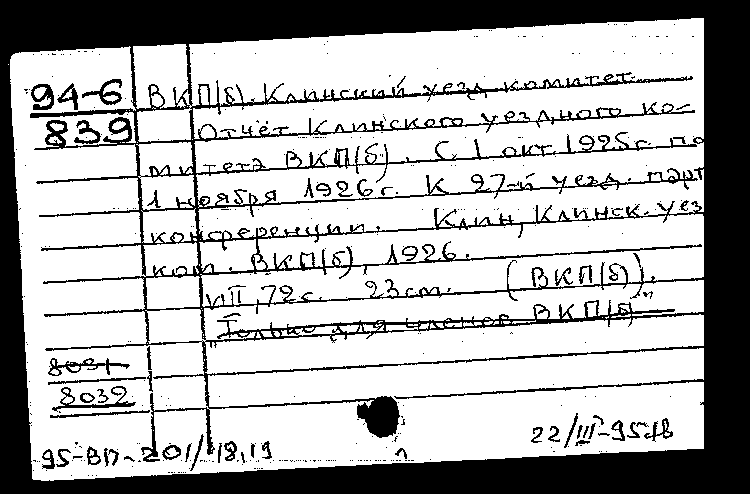 94-6 ВКП(б). Клинский уезд. комитет.
839 Отчёт Клинского уездного ко-
митета ВКП(б). С 1 окт. 1925 г. по
1 ноября 1926 г. К 27-й уезд. парт
конференции. Клин, Клинск. уез
ком. ВКП(б), 1926.
VII, 72 с. 23 см. (ВКП(б).
"Только для членов ВКП(б)"
8031
8032
95-ВП-201/18,19 22/III-95.18